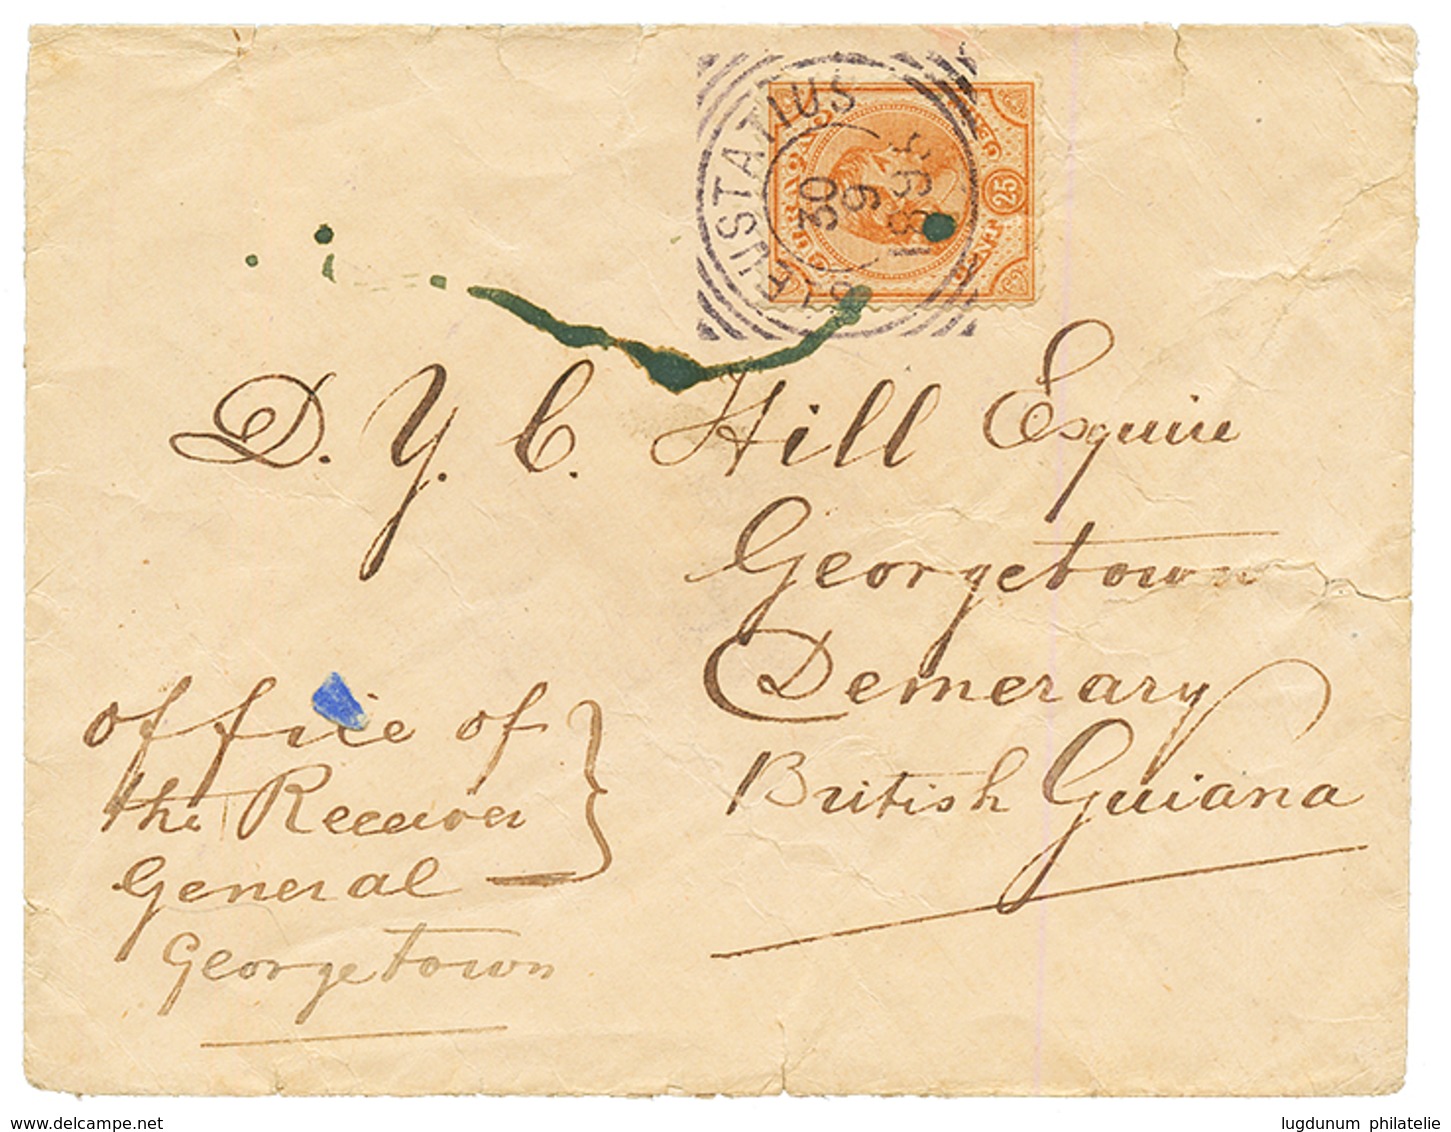 ST EUSTATIUS
30
9
1895
CURAÇAO
25
CENT
D. Y. C. Hill Esquire
Georgetown
Demerary
British Guiana
Office of
the Receiver
General
Georgetown
www.delcampe.net
lugdunum philatelie